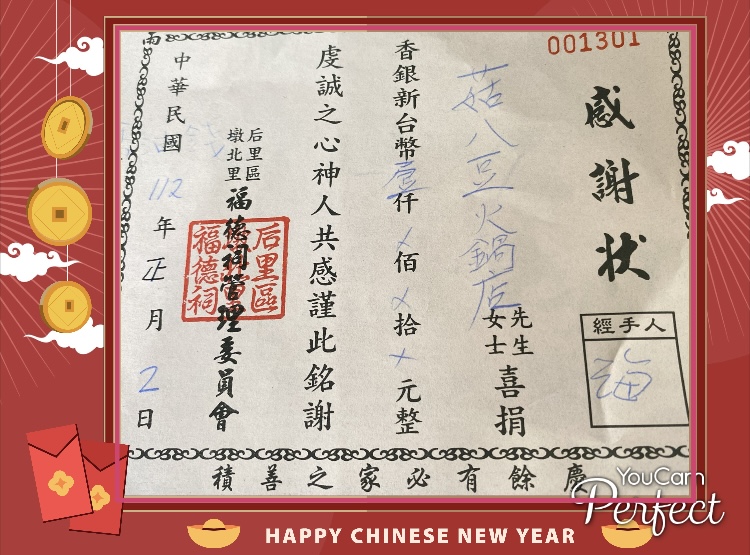 001301
感謝狀
經手人
海
菇八豆火鍋店
先生
女士
喜捐
香銀新台幣壹仟✓佰✓拾✓元整
虔誠之心神人共感謹此銘謝
后里區
墩北里
福德祠管理委員會
后里區
福德祠
中華民國112年正月2日
積善之家必有餘慶
YouCam
Perfect
HAPPY CHINESE NEW YEAR